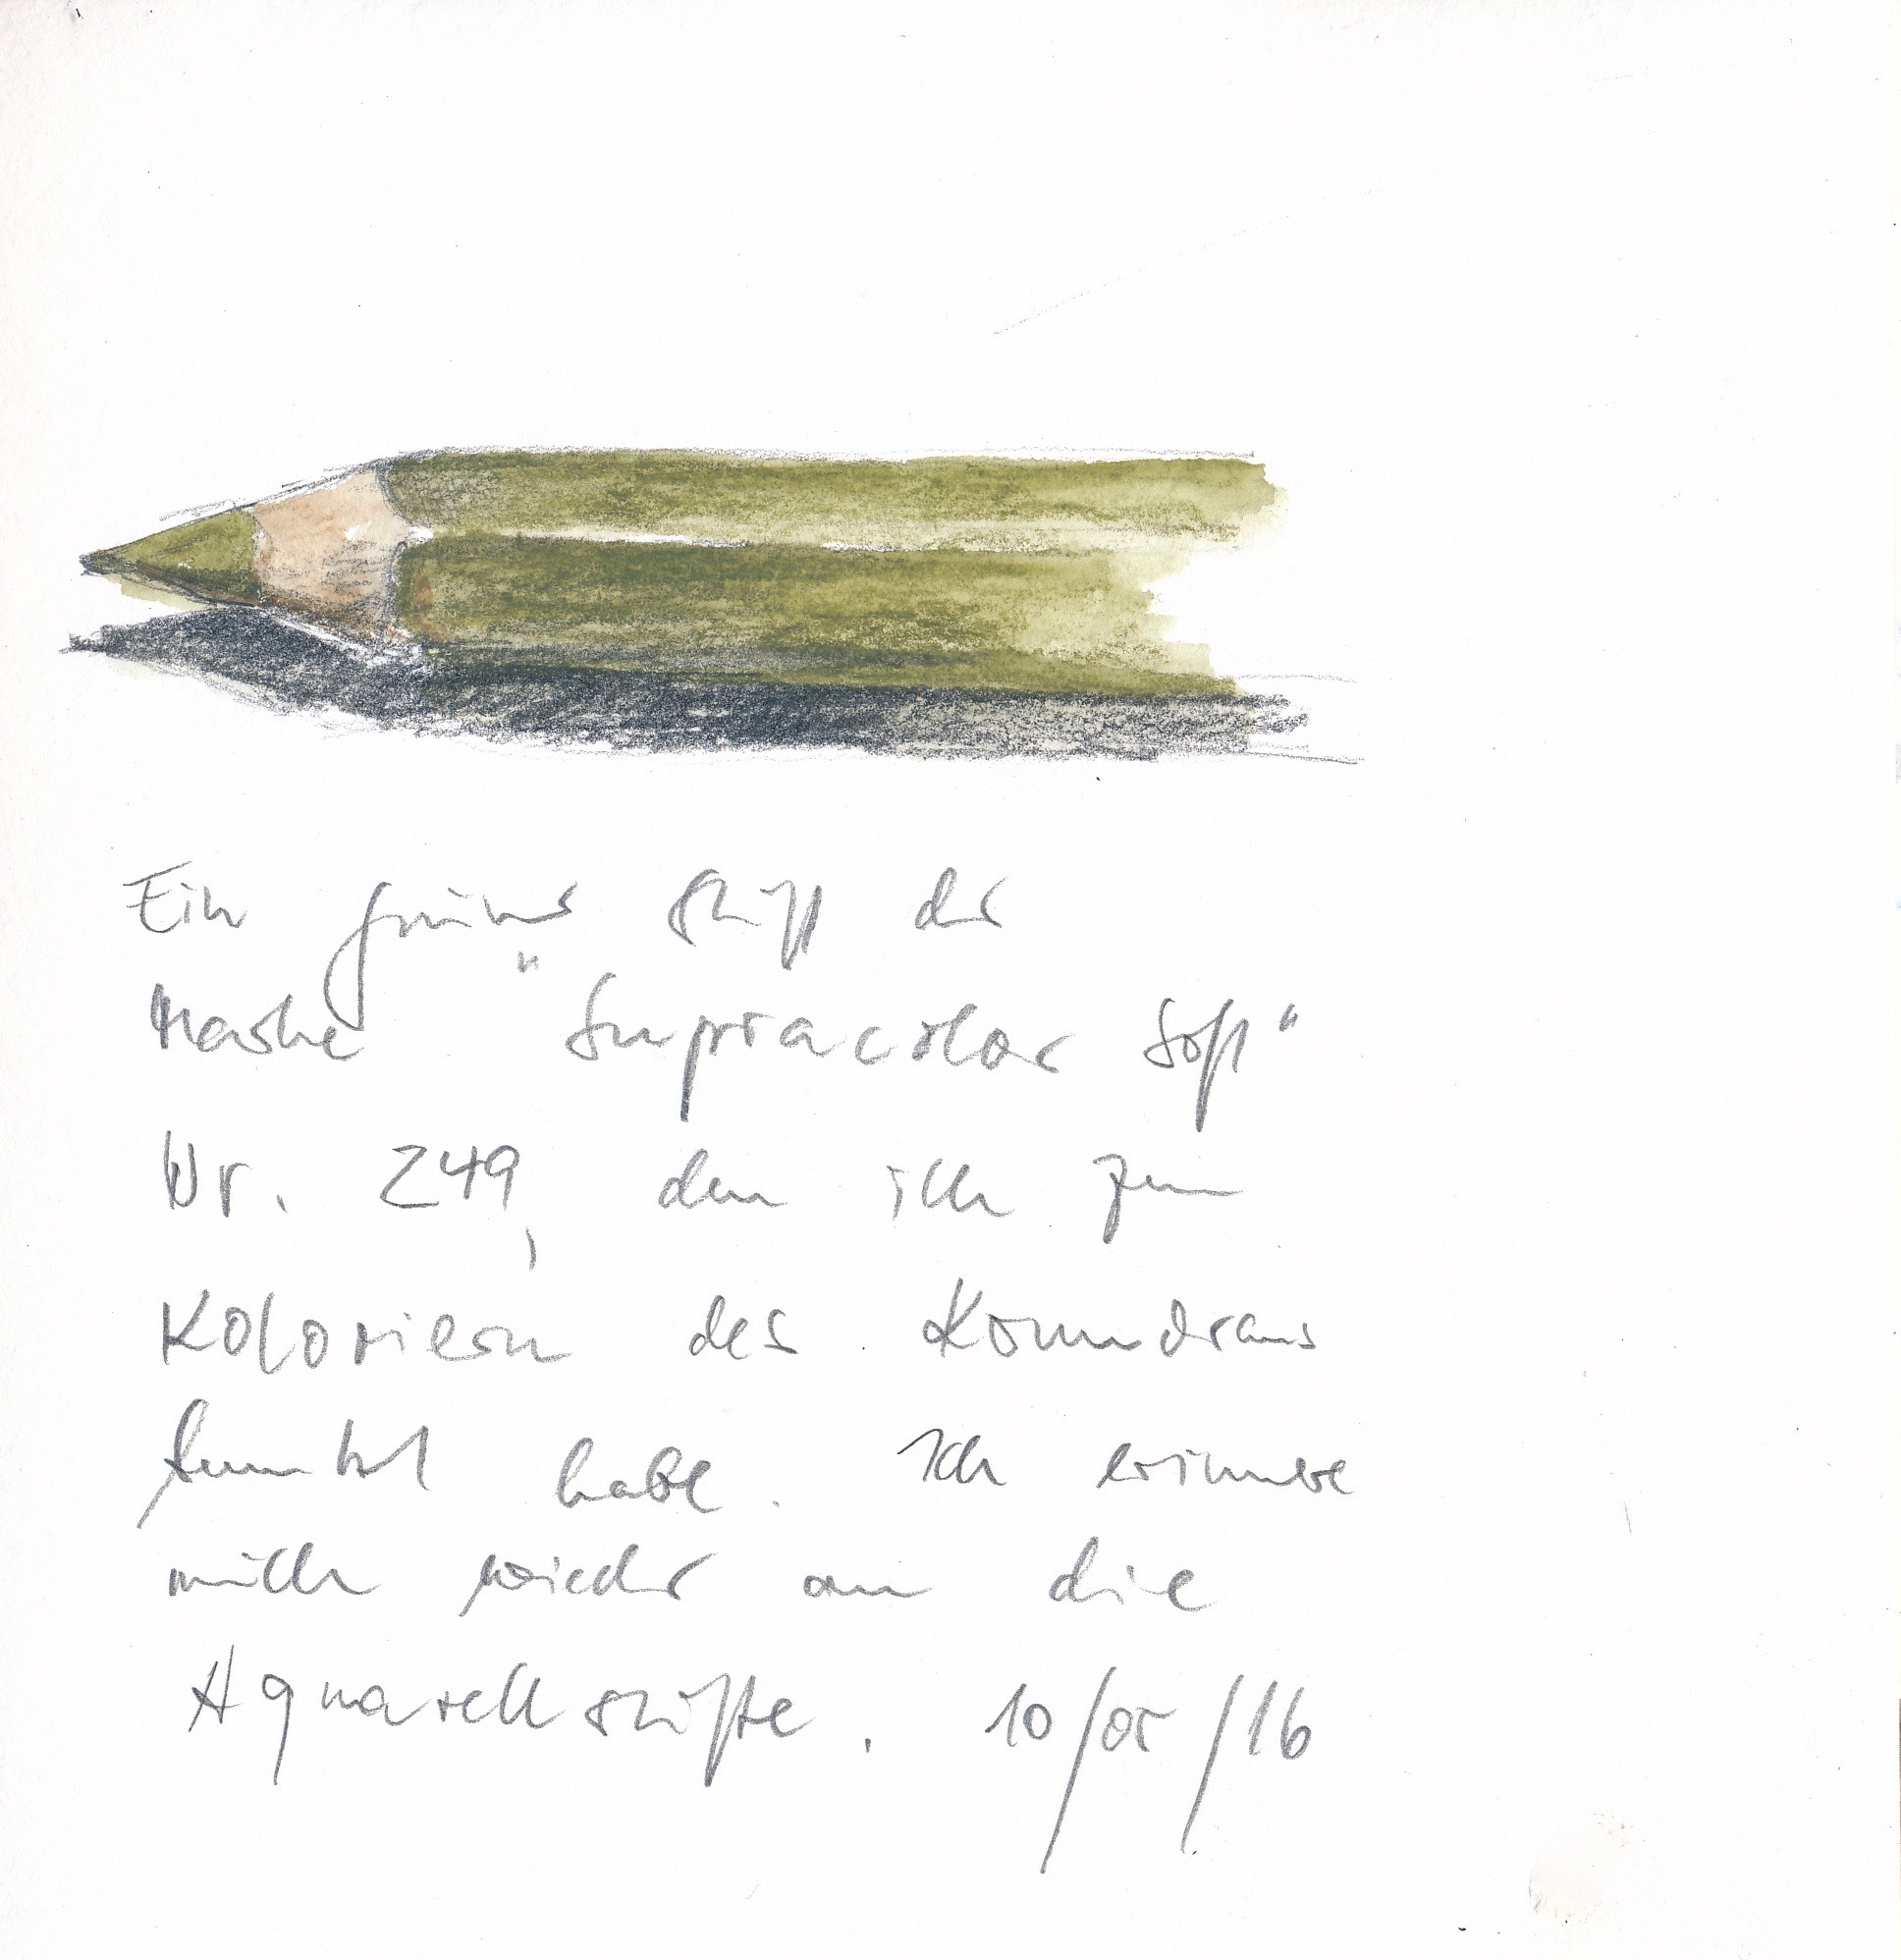 Ein grüner Stift der
Marke "Supracolor Soft"
Nr. 249, den ich zum
Kolorieren des
benutzt habe. Ich erinnere
mich wieder an die
Aquarellstifte. 10/05/16